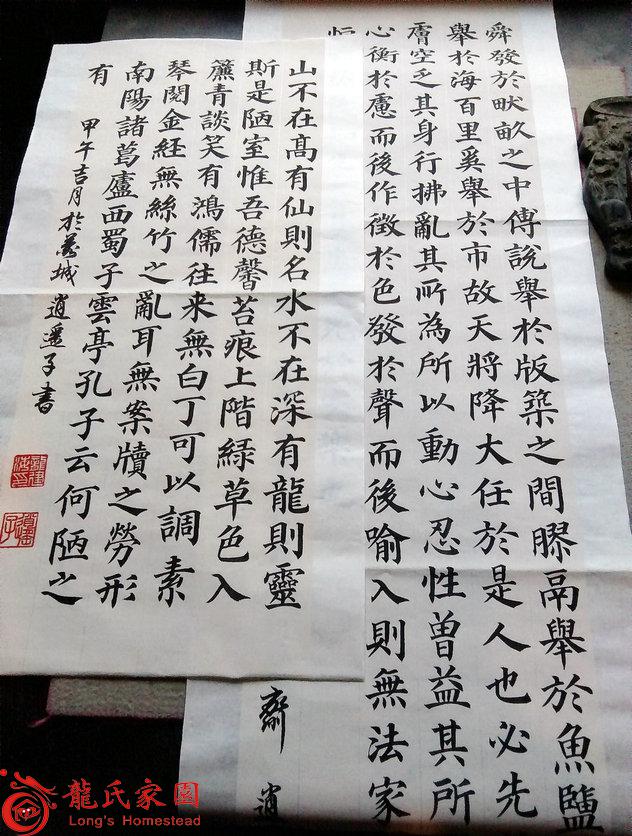 舜發於畎畝之中傅說舉於版築之間膠鬲舉於魚鹽
舉於海百里奚舉於市故天將降大任於是人也必先
膚空乏其身行拂亂其所為所以動心忍性曾益其所
心衡於慮而後作徵於色發於聲而後喻入則無法家
恒
齋 逍
山不在髙有仙則名水不在深有龍則靈
斯是陋室惟吾德馨苔痕上階綠草色入
簾青談笑有鴻儒往来無白丁可以調素
琴閱金経無絲竹之亂耳無案牘之勞形
南陽諸葛廬西蜀子雲亭孔子云何陋之
有 甲午吉月於蓉城逍遥子書
龍氏家園
Long's Homestead